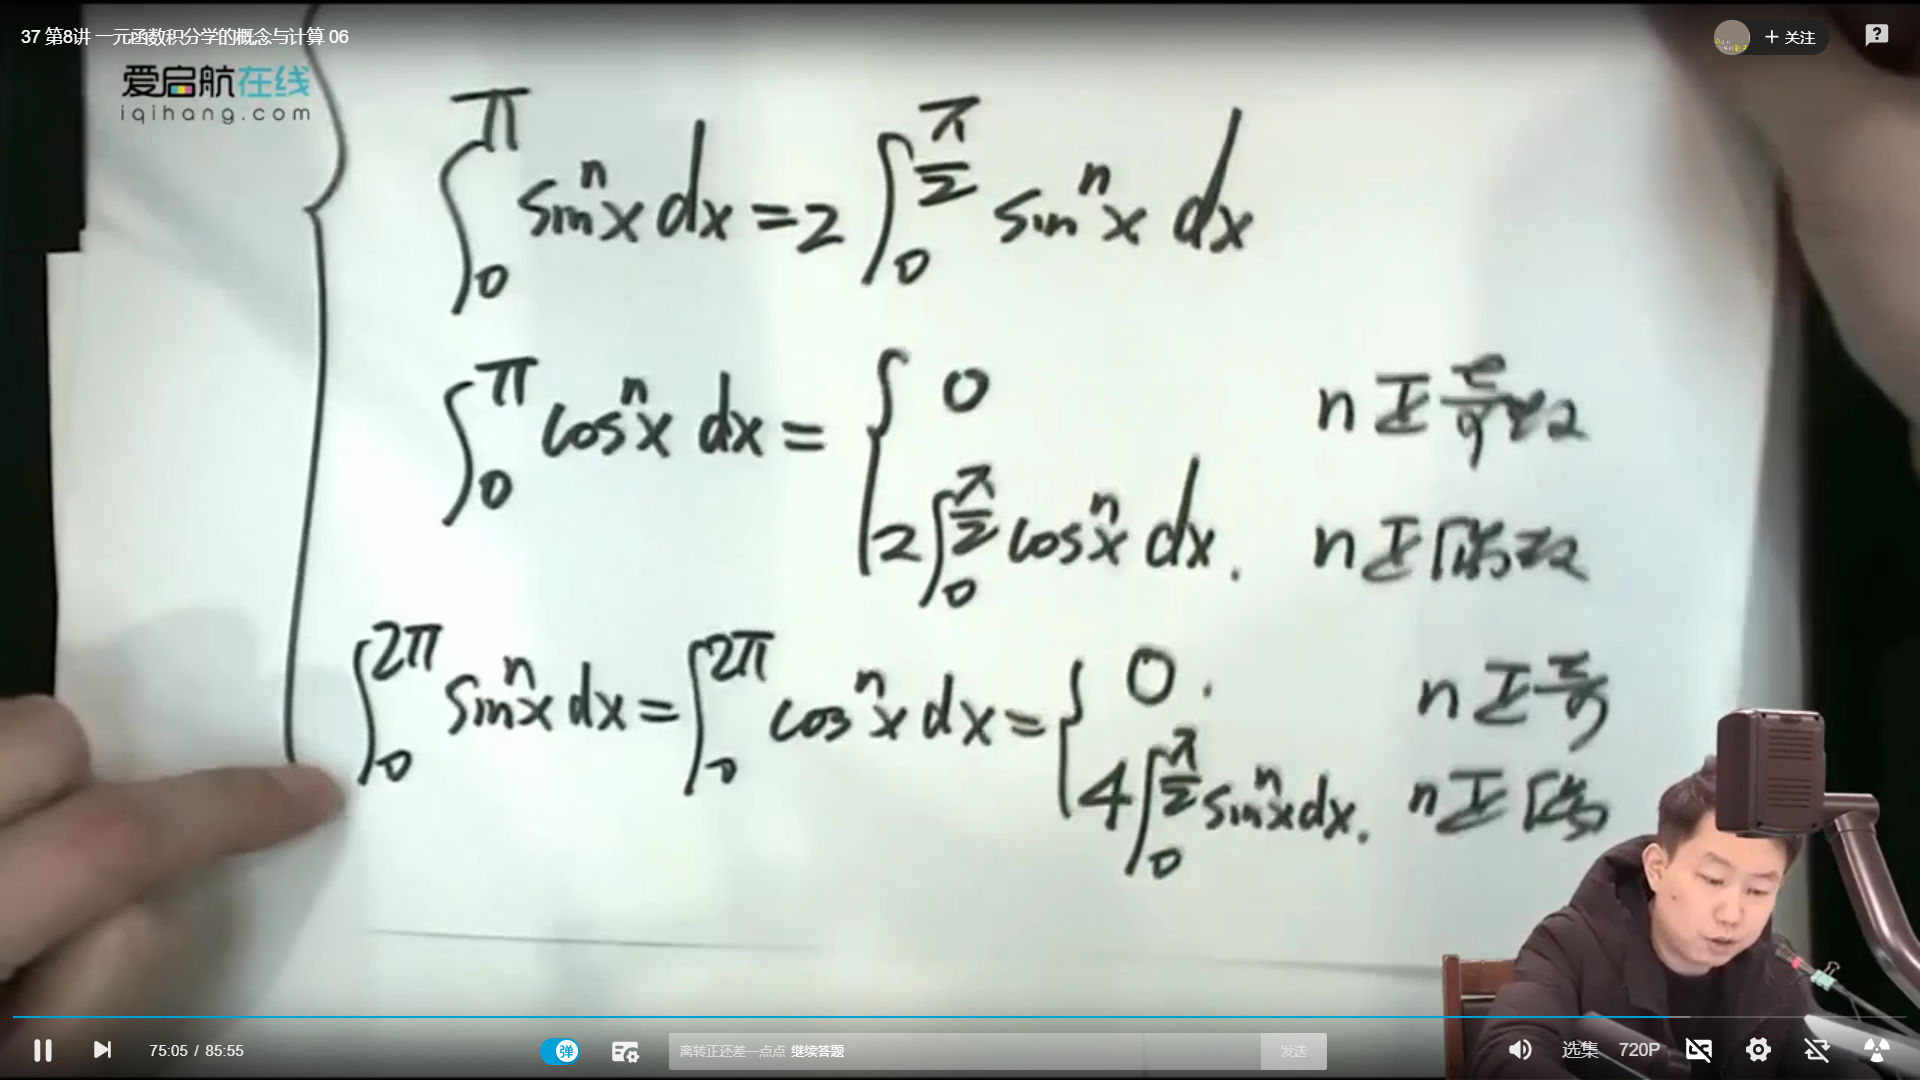 37 第8讲 一元函数积分学的概念与计算 06
+ 关注
爱启航在线
iqihang.com
∫₀^π sinⁿx dx = 2 ∫₀^(π/2) sinⁿx dx
∫₀^π cosⁿx dx = { 0 n正奇数
2∫₀^(π/2) cosⁿx dx. n正偶数
∫₀^2π sinⁿx dx = ∫₀^2π cosⁿx dx = { 0. n正奇
4∫₀^(π/2) sinⁿx dx. n正偶
75:05 / 85:55
弹
离转正还差一点点 继续答题
发送
选集
720P